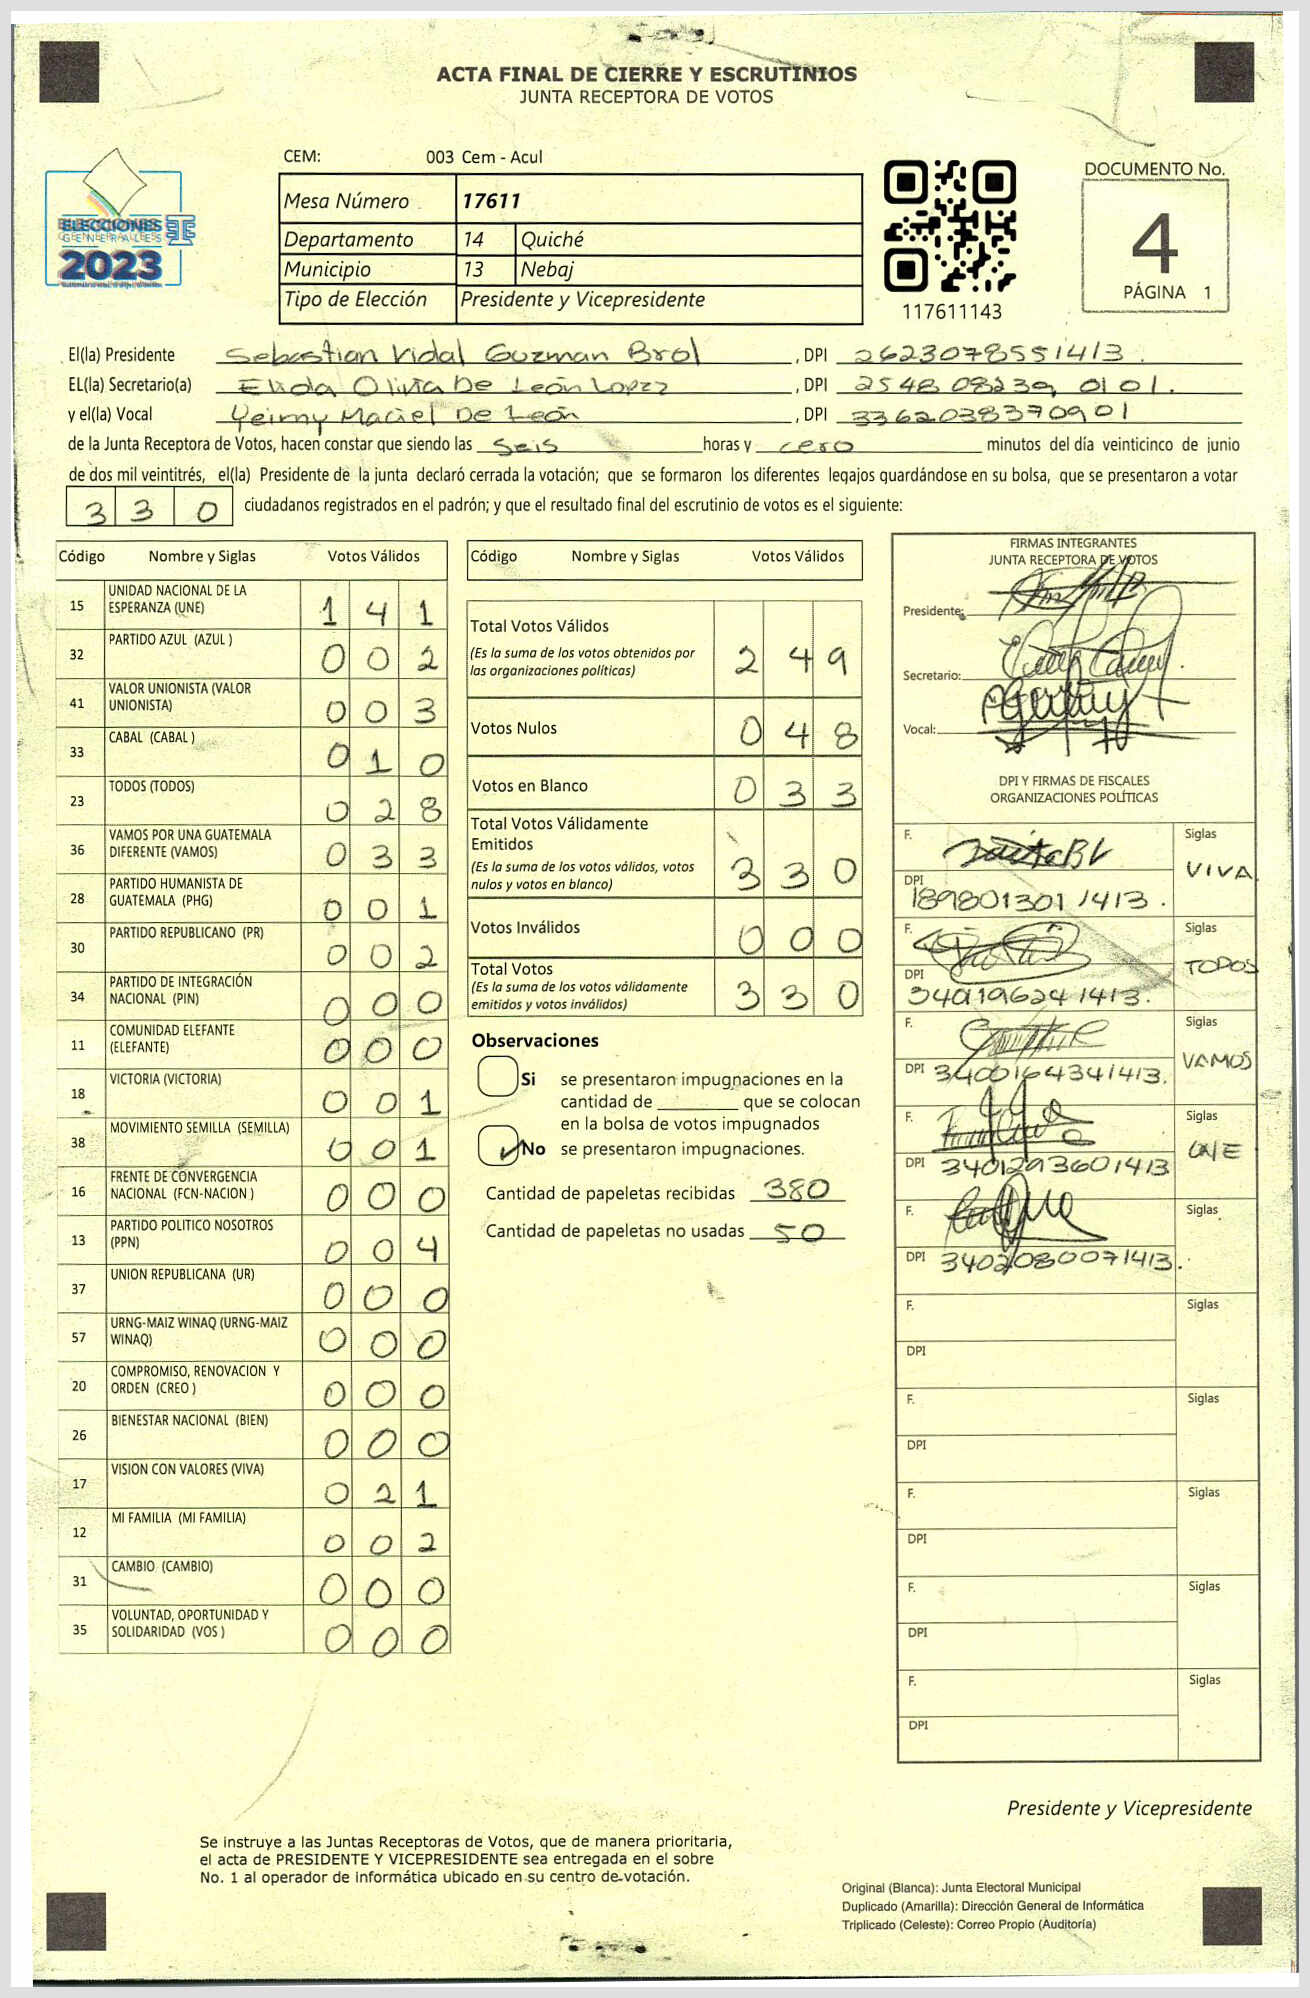 ACTA FINAL DE CIERRE Y ESCRUTINIOS
JUNTA RECEPTORA DE VOTOS
CEM: 003 Cem - Acul
Mesa Número 17611
Departamento 14 Quiché
Municipio 13 Nebaj
Tipo de Elección Presidente y Vicepresidente
ELECCIONES
GENERALES
2023
117611143
DOCUMENTO No.
4
PÁGINA 1
El(la) Presidente Sebastian Vidal Guzman Brol, DPI 2623078551413.
EL(la) Secretario(a) Elida Olivia De León Lopez, DPI 2548 08239, 0101.
y el(la) Vocal Yeimy Maciel De León, DPI 3362038370901
de la Junta Receptora de Votos, hacen constar que siendo las seis horas y cero minutos del día veinticinco de junio
de dos mil veintitrés, el(la) Presidente de la junta declaró cerrada la votación; que se formaron los diferentes legajos quardándose en su bolsa, que se presentaron a votar
330 ciudadanos registrados en el padrón; y que el resultado final del escrutinio de votos es el siguiente:
Código Nombre y Siglas Votos Válidos
15 UNIDAD NACIONAL DE LA ESPERANZA (UNE) 141
32 PARTIDO AZUL (AZUL ) 002
41 VALOR UNIONISTA (VALOR UNIONISTA) 003
33 CABAL (CABAL ) 010
23 TODOS (TODOS) 028
36 VAMOS POR UNA GUATEMALA DIFERENTE (VAMOS) 033
28 PARTIDO HUMANISTA DE GUATEMALA (PHG) 001
30 PARTIDO REPUBLICANO (PR) 002
34 PARTIDO DE INTEGRACIÓN NACIONAL (PIN) 000
11 COMUNIDAD ELEFANTE (ELEFANTE) 000
18 VICTORIA (VICTORIA) 001
38 MOVIMIENTO SEMILLA (SEMILLA) 001
16 FRENTE DE CONVERGENCIA NACIONAL (FCN-NACION ) 000
13 PARTIDO POLITICO NOSOTROS (PPN) 004
37 UNION REPUBLICANA (UR) 000
57 URNG-MAIZ WINAQ (URNG-MAIZ WINAQ) 000
20 COMPROMISO, RENOVACION Y ORDEN (CREO ) 000
26 BIENESTAR NACIONAL (BIEN) 000
17 VISION CON VALORES (VIVA) 021
12 MI FAMILIA (MI FAMILIA) 002
31 CAMBIO (CAMBIO) 000
35 VOLUNTAD, OPORTUNIDAD Y SOLIDARIDAD (VOS ) 000
Código Nombre y Siglas Votos Válidos
Total Votos Válidos 249
(Es la suma de los votos obtenidos por
las organizaciones políticas)
Votos Nulos 048
Votos en Blanco 033
Total Votos Válidamente
Emitidos 330
(Es la suma de los votos válidos, votos
nulos y votos en blanco)
Votos Inválidos 000
Total Votos 330
(Es la suma de los votos válidamente
emitidos y votos inválidos)
Observaciones
Si se presentaron impugnaciones en la
cantidad de ________ que se colocan
en la bolsa de votos impugnados
No se presentaron impugnaciones.
Cantidad de papeletas recibidas 380
Cantidad de papeletas no usadas 50
FIRMAS INTEGRANTES
JUNTA RECEPTORA DE VOTOS
Presidente:
Secretario:
Vocal:
DPI Y FIRMAS DE FISCALES
ORGANIZACIONES POLÍTICAS
F. Siglas VIVA
DPI 1898013011413.
F. Siglas TODOS
DPI 3401196241413.
F. Siglas VAMOS
DPI 3400164341413.
F. Siglas UNE
DPI 3401293601413
F. Siglas
DPI 3402080071413.
F. Siglas
DPI
F. Siglas
DPI
F. Siglas
DPI
F. Siglas
DPI
F. Siglas
DPI
Presidente y Vicepresidente
Se instruye a las Juntas Receptoras de Votos, que de manera prioritaria,
el acta de PRESIDENTE Y VICEPRESIDENTE sea entregada en el sobre
No. 1 al operador de informática ubicado en su centro de votación.
Original (Blanca): Junta Electoral Municipal
Duplicado (Amarilla): Dirección General de Informática
Triplicado (Celeste): Correo Propio (Auditoría)